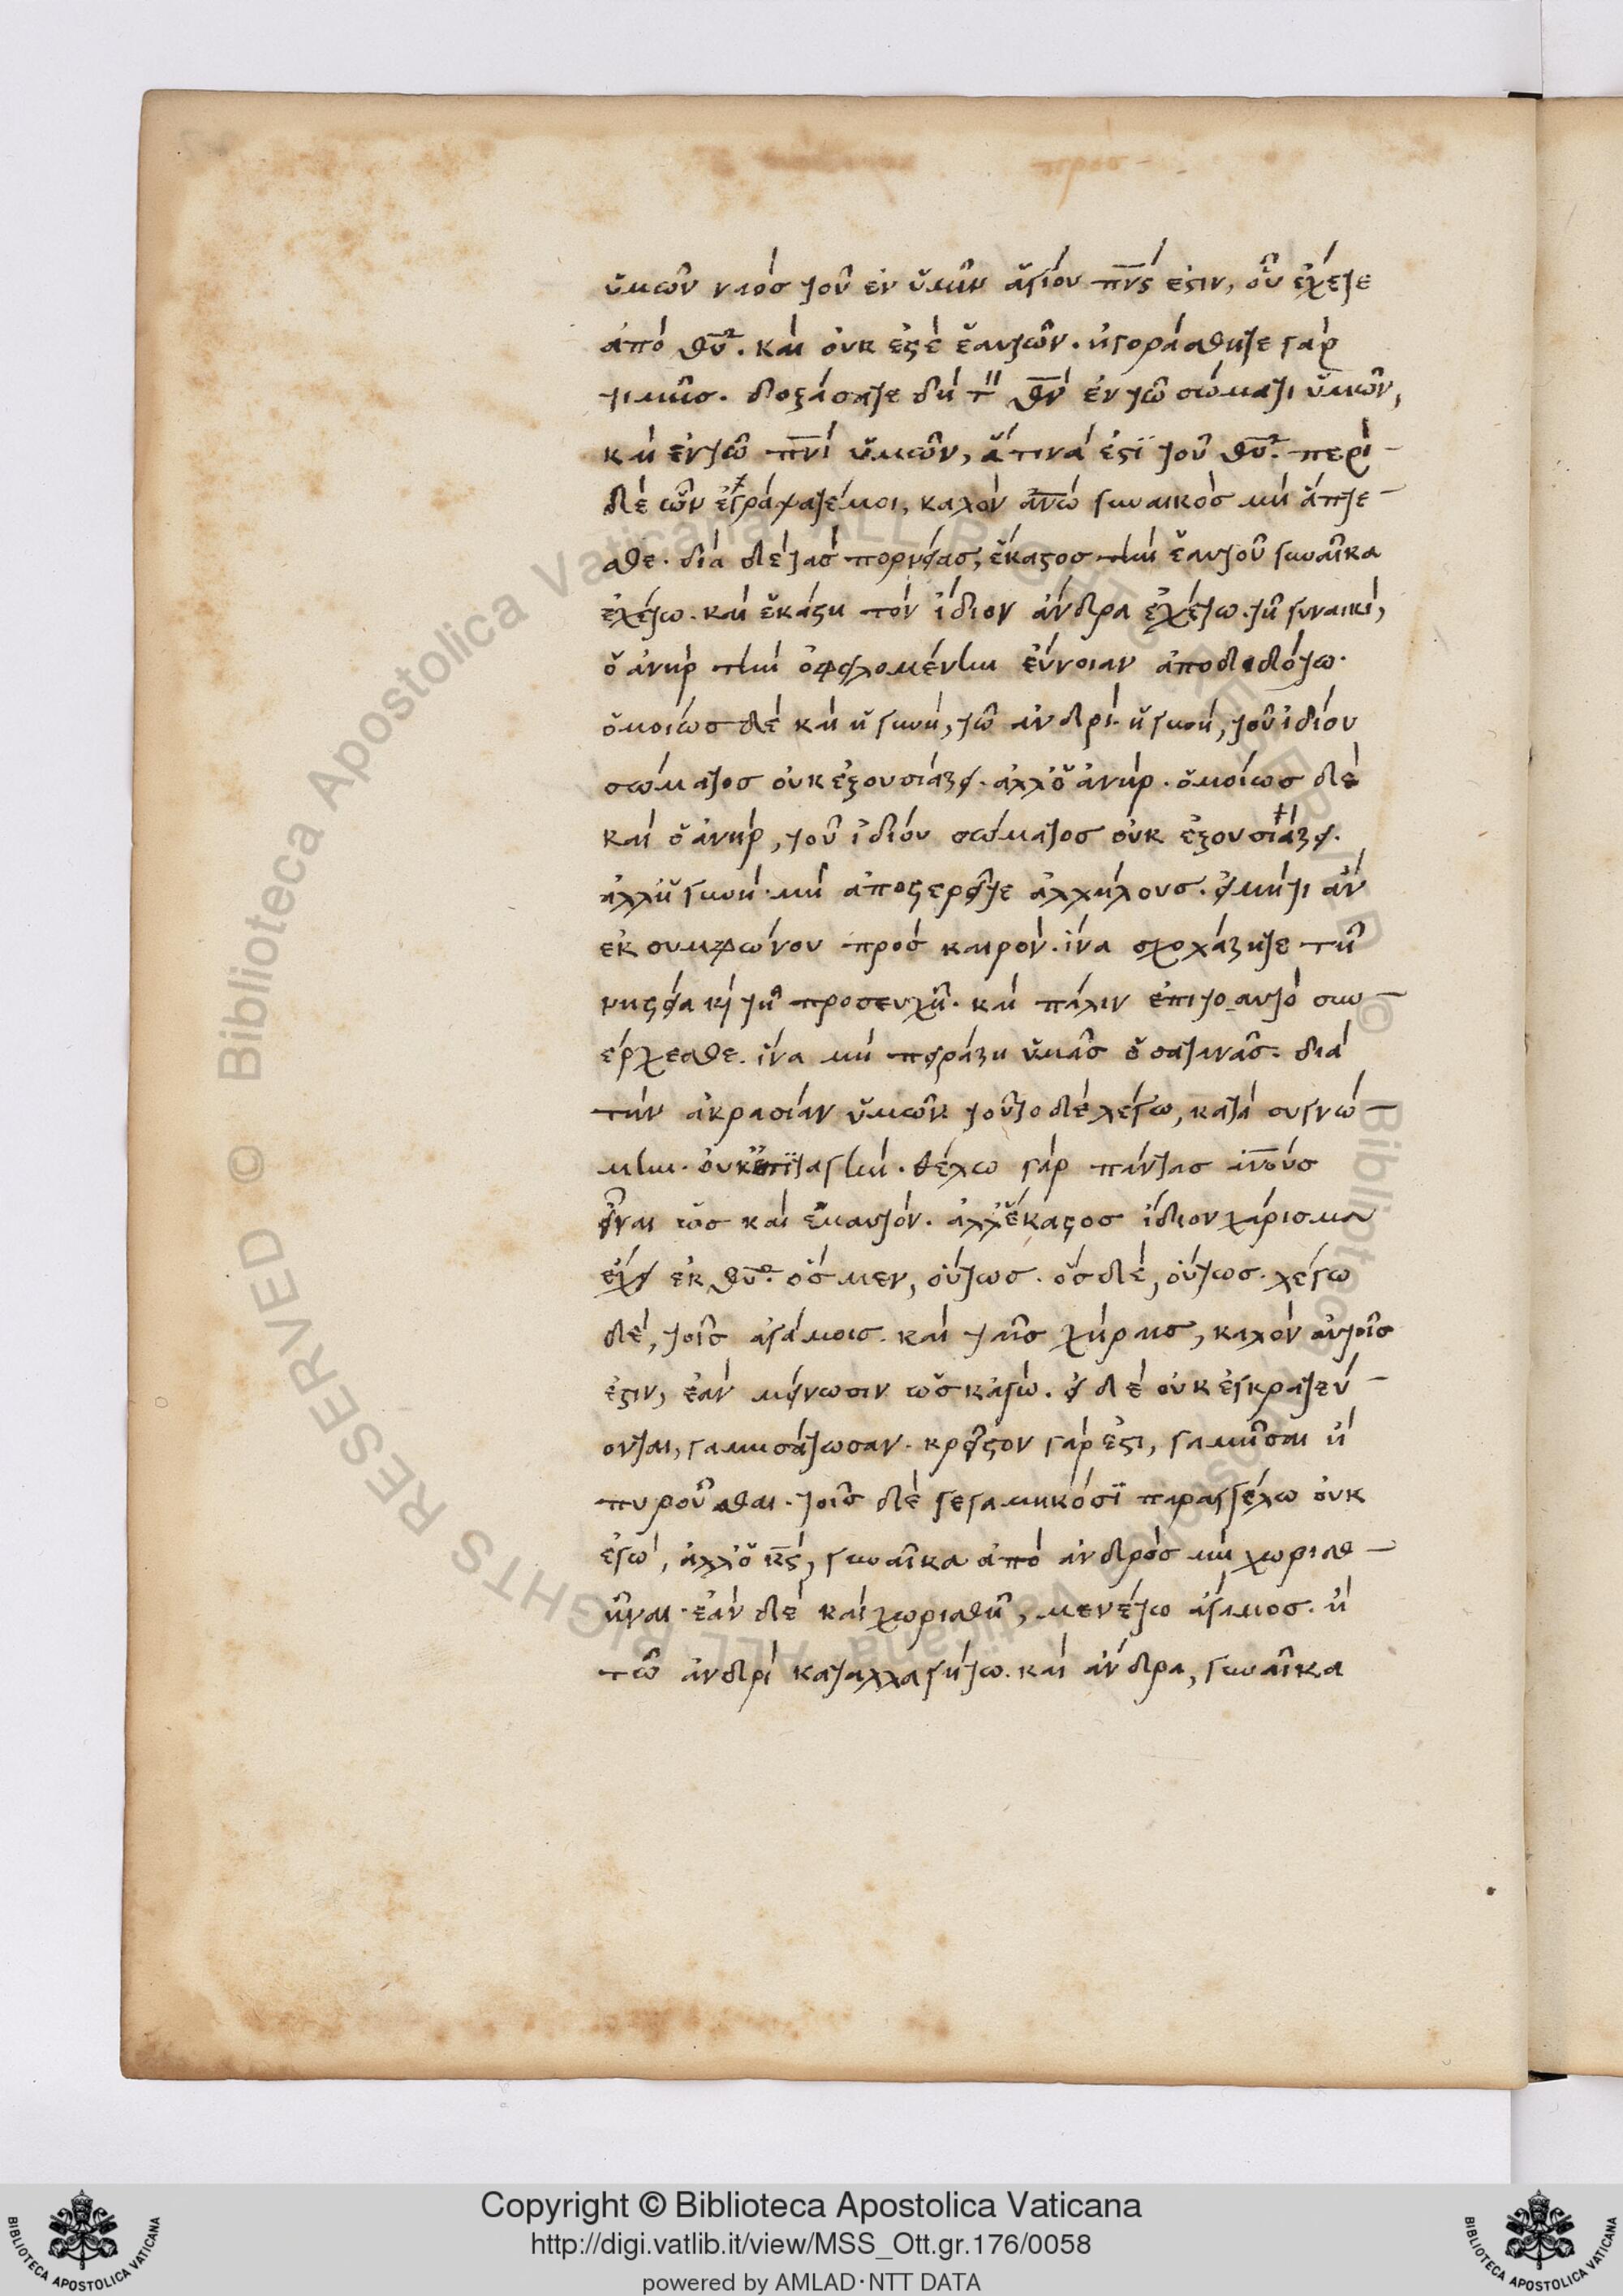 ὑμῶν ναὸσ τοῦ ἐν ὑμῖν ἁγίου πν̅ς ἐστιν, οὗ ἔχετε
ἀπὸ θυ̅. καὶ οὐκ ἐστὲ ἑαυτῶν. ἠγοράσθητε γὰρ
τιμῆσ. δοξάσατε δὴ τ̀ θν̅ ἐν τῶ σώματι ὑμῶν,
καὶ ἐν τῶ πνι̅ ὑμῶν, ἅτινά ἐστϊ τοῦ θυ̅. περὶ
δὲ ὧν ἐγράψατέ μοι, καλὸν ἀνω̅ γυναικὸσ μὴ ἅπτε
σθε. διὰ δὲ τὰσ πορνείασ, ἕκαστοσ τὴν ἑαυτοῦ γυναῖκα
ἐχέτω. καὶ ἑκάστη τὸν ἴδιον ἄνδρα ἐχέτω. τῆ γυναικὶ,
ὁ ἀνὴρ τὴν ὀφειλομένην εὔνοιαν ἀποδιδότω.
ὁμοίωσ δὲ καὶ ἡ γυνὴ, τῶ ἀνδρί. ἡ γυνὴ, τοῦ ἰδίου
σώματοσ οὐκ ἐξουσιάζει. ἀλλ' ὁ ἀνήρ. ὁμοίωσ δὲ
καὶ ὁ ἀνὴρ, τοῦ ἰδίου σώματοσ οὐκ ἐξουσιάζει.
ἀλλ' ἡ γυνή. μὴ ἀποστερεῖτε ἀλλήλουσ. εἰ μή τι ἂν
ἐκ συμφώνου πρὸσ καιρόν. ἵνα σχολάζητε τῆ
νηστεία κ̀ τῆ προσευχῆ. καὶ πάλιν ἐπι το αυτὸ συν
έρχεσθε. ἵνα μὴ πειράζη ὑμᾶσ ὁ σατανᾶσ. διὰ
τὴν ἀκρασίαν ὑμῶν τοῦτο δὲ λέγω, κατὰ συγνώ
μην. οὐκ ἐπϊταγήν. θέλω γὰρ πάντασ ἀνο̅ύσ
εἶναι ὡσ καὶ ἐμαυτόν. ἀλλ' ἕκαστοσ ἴδιον χάρισμα
ἔχει ἐκ θυ̅. ὃσ μεν, οὕτωσ. ὃσ δὲ, οὕτωσ. λέγω
δὲ, τοῖσ ἀγάμοισ. καὶ ταῖσ χήραισ, καλὸν αὐτοῖσ
ἐστιν, ἐὰν μείνωσιν ὡσ κἀγώ. εἰ δὲ οὐκ ἐγκρατεύ
ονται, γαμησάτωσαν. κρεῖσσον γάρ ἐστι, γαμῆσαι ἢ
πυροῦσθαι. τοῖσ δὲ γεγαμηκόσϊ παραγγέλλω οὐκ
ἐγὼ, ἀλλ' ὁ κς̅, γυναῖκα ἀπὸ ἀνδρὸσ μὴ χωρισθ
ῆναι. ἐὰν δὲ καὶ χωρισθῆ, μενέτω ἄγαμοσ. ἢ
τῶ ἀνδρὶ καταλλαγήτω. καὶ ἄνδρα, γυναῖκα
Copyright © Biblioteca Apostolica Vaticana
http://digi.vatlib.it/view/MSS_Ott.gr.176/0058
powered by AMLAD·NTT DATA
BIBLIOTECA APOSTOLICA VATICANA
BIBLIOTECA APOSTOLICA VATICANA
© Biblioteca Apostolica Vaticana ALL RIGHTS RESERVED
© Biblioteca Apostolica Vaticana ALL RIGHTS RESERVED